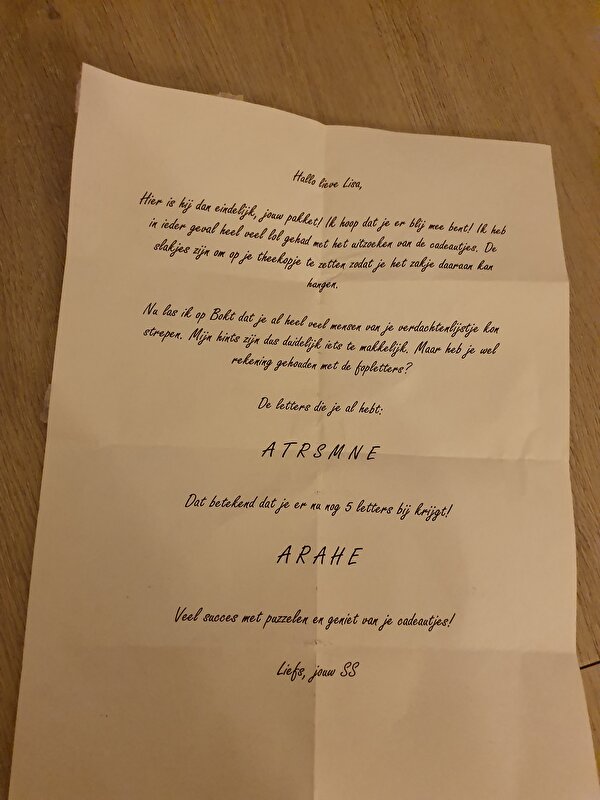 Hallo lieve Lisa,
Hier is hij dan eindelijk, jouw pakket! Ik hoop dat je er blij mee bent! Ik heb
in ieder geval heel veel lol gehad met het uitzoeken van de cadeautjes. De
slakjes zijn om op je theekopje te zetten zodat je het zakje daaraan kan
hangen.
Nu las ik op Bokt dat je al heel veel mensen van je verdachtenlijstje kon
strepen. Mijn hints zijn dus duidelijk iets te makkelijk. Maar heb je wel
rekening gehouden met de fopletters?
De letters die je al hebt:
A T R S M N E
Dat betekend dat je er nu nog 5 letters bij krijgt!
A R A H E
Veel succes met puzzelen en geniet van je cadeautjes!
Liefs, jouw SS